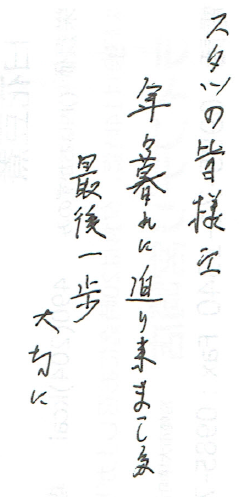 スタツの皆様
年夕暮れに迫り来まし多
最後一歩
大切に